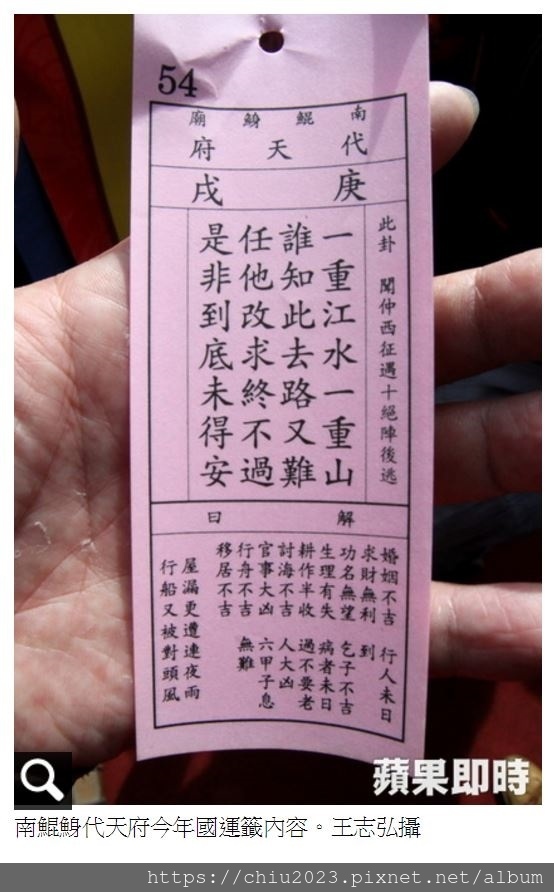 54
南鯤鯓廟
代天府
庚戌
此卦 聞仲西征遇十絕陣後逃
一重江水一重山
誰知此去路又難
任他改求終不過
是非到底未得安
解曰
婚姻不吉 行人未日
求財無利 到
功名無望 乞子不吉
生理有失 病者未日
耕作半收 過不要老
討海不吉 人大凶
官事大凶 六甲子息
行舟不吉 無難
移居不吉
屋漏更遭連夜雨
行船又被對頭風
蘋果即時
南鯤鯓代天府今年國運籤內容。王志弘攝
https://chiu2023.pixnet.net/album